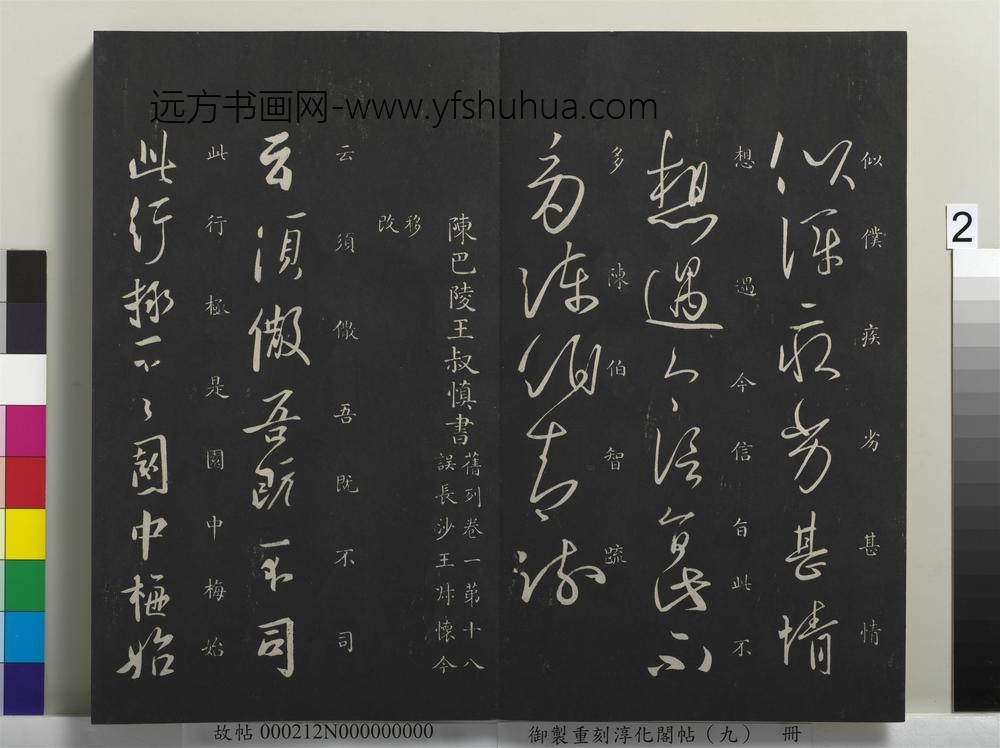 远方书画网-www.yfshuhua.com
似僕疾劣甚情
想遇今信旨此不
多陳伯智疏
陳巴陵王叔慎書
舊列卷一第十八
誤長沙王叔懷今
移
改
云須儆吾既不司
此行極是園中梅始
2
故帖 000212N000000000
御製重刻淳化閣帖（九） 冊